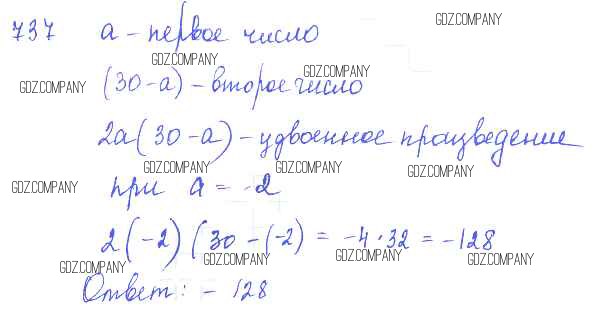 737 a - первое число
(30-a) - второе число
2a(30-a) - удвоенное произведение
при a = -2
2(-2)(30-(-2) = -4·32 = -128
Ответ: -128
GDZ.COMPANY
GDZ.COMPANY
GDZ.COMPANY
GDZ.COMPANY
GDZ.COMPANY
GDZ.COMPANY
GDZ.COMPANY
GDZ.COMPANY
GDZ.COMPANY
GDZ.COMPANY
GDZ.COMPANY
GDZ.COMPANY